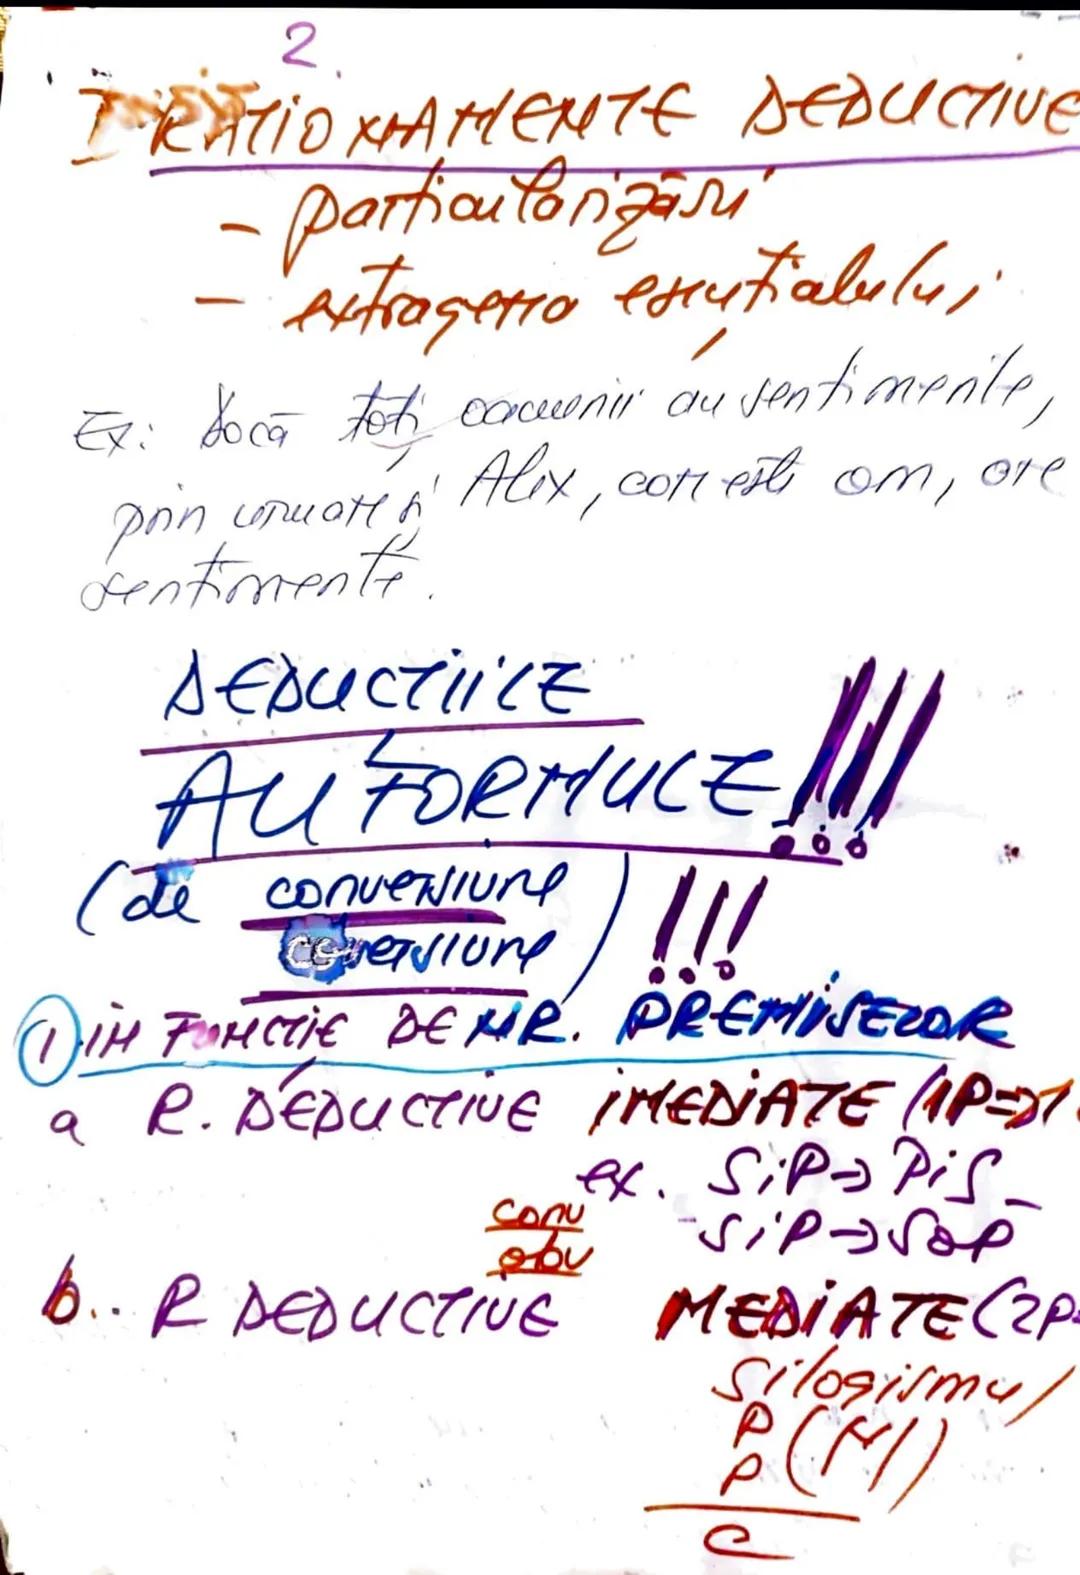 2.
I RAȚIONAMENTE DEDUCTIVE
- particularizări
- extragerea esențialului
Ex: Dacă toți oamenii au sentimente,
prin urmare și Alex, care este om, are
sentimente.
DEDUCTIILE
AU FORMULE!!!
(de conversiune
obversiune) !!!
① IN FUNCȚIE DE NR. PREMISELOR
a R. DEDUCTIVE IMEDIATE (1P=>1
ex. SiP→PiS
conv
-SiP→SoP
obv
b.. R DEDUCTIVE MEDIATE (2P=
Silogismul
P
P (M)
C